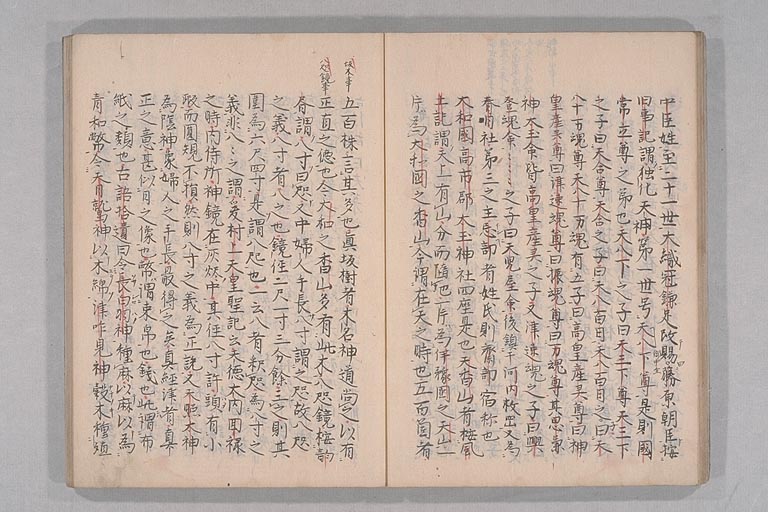 中臣姓至二十一世大織冠鎌足改賜藤原朝臣按
旧事記謂独化天神第一世号天八下尊是則國
常立尊之弟也天八下之子曰天三下尊天三下
之子曰天合尊天合之子曰天八百日天八百日之子曰天
八十万魂尊天八十万魂有五子曰高皇產灵尊曰神
皇產灵尊曰津速魂尊曰振魂尊曰万魂尊其思兼
神太玉命皆高皇產灵之子又津速魂之子曰興
登魂命之子曰天児屋命後鎮于河内枚岡又為
春日社第三之主忌部者姓氏則齋部宿祢也
大和國高市郡太玉神社四座是也天香山者按風
土記謂天上有山分而墮地一片為伊豫國之天山一
片為大和國之香山今謂在天之時也五百箇者
坂木事
八咫鏡事
五百株言其多也真坂樹者木名神道尚之以有
正直之德也今大和之香山多有此木八咫鏡按韵
會謂八寸曰咫又中婦人手長八寸謂之咫故八咫
之義八寸者八之也鏡径二尺一寸三分餘三之則其
圍為六尺四寸是謂八咫也一云八者釈咫為八寸之
義非八之謂爰村上天皇聖記云天德大内回祿
之時内侍所神鏡在灰炎中其径八寸許頭有小
瑕而圓規不損然則八寸之義為正說又天照大神
為陰神象婦人之手長最得之矣真經津者真
正之意甚以月之像也幣謂束帛也錢也此謂布
紙之類也古語拾遺曰令長白羽神種麻以麻以為
青和幣令天日鷲神以木綿津咋見神穀木種殖